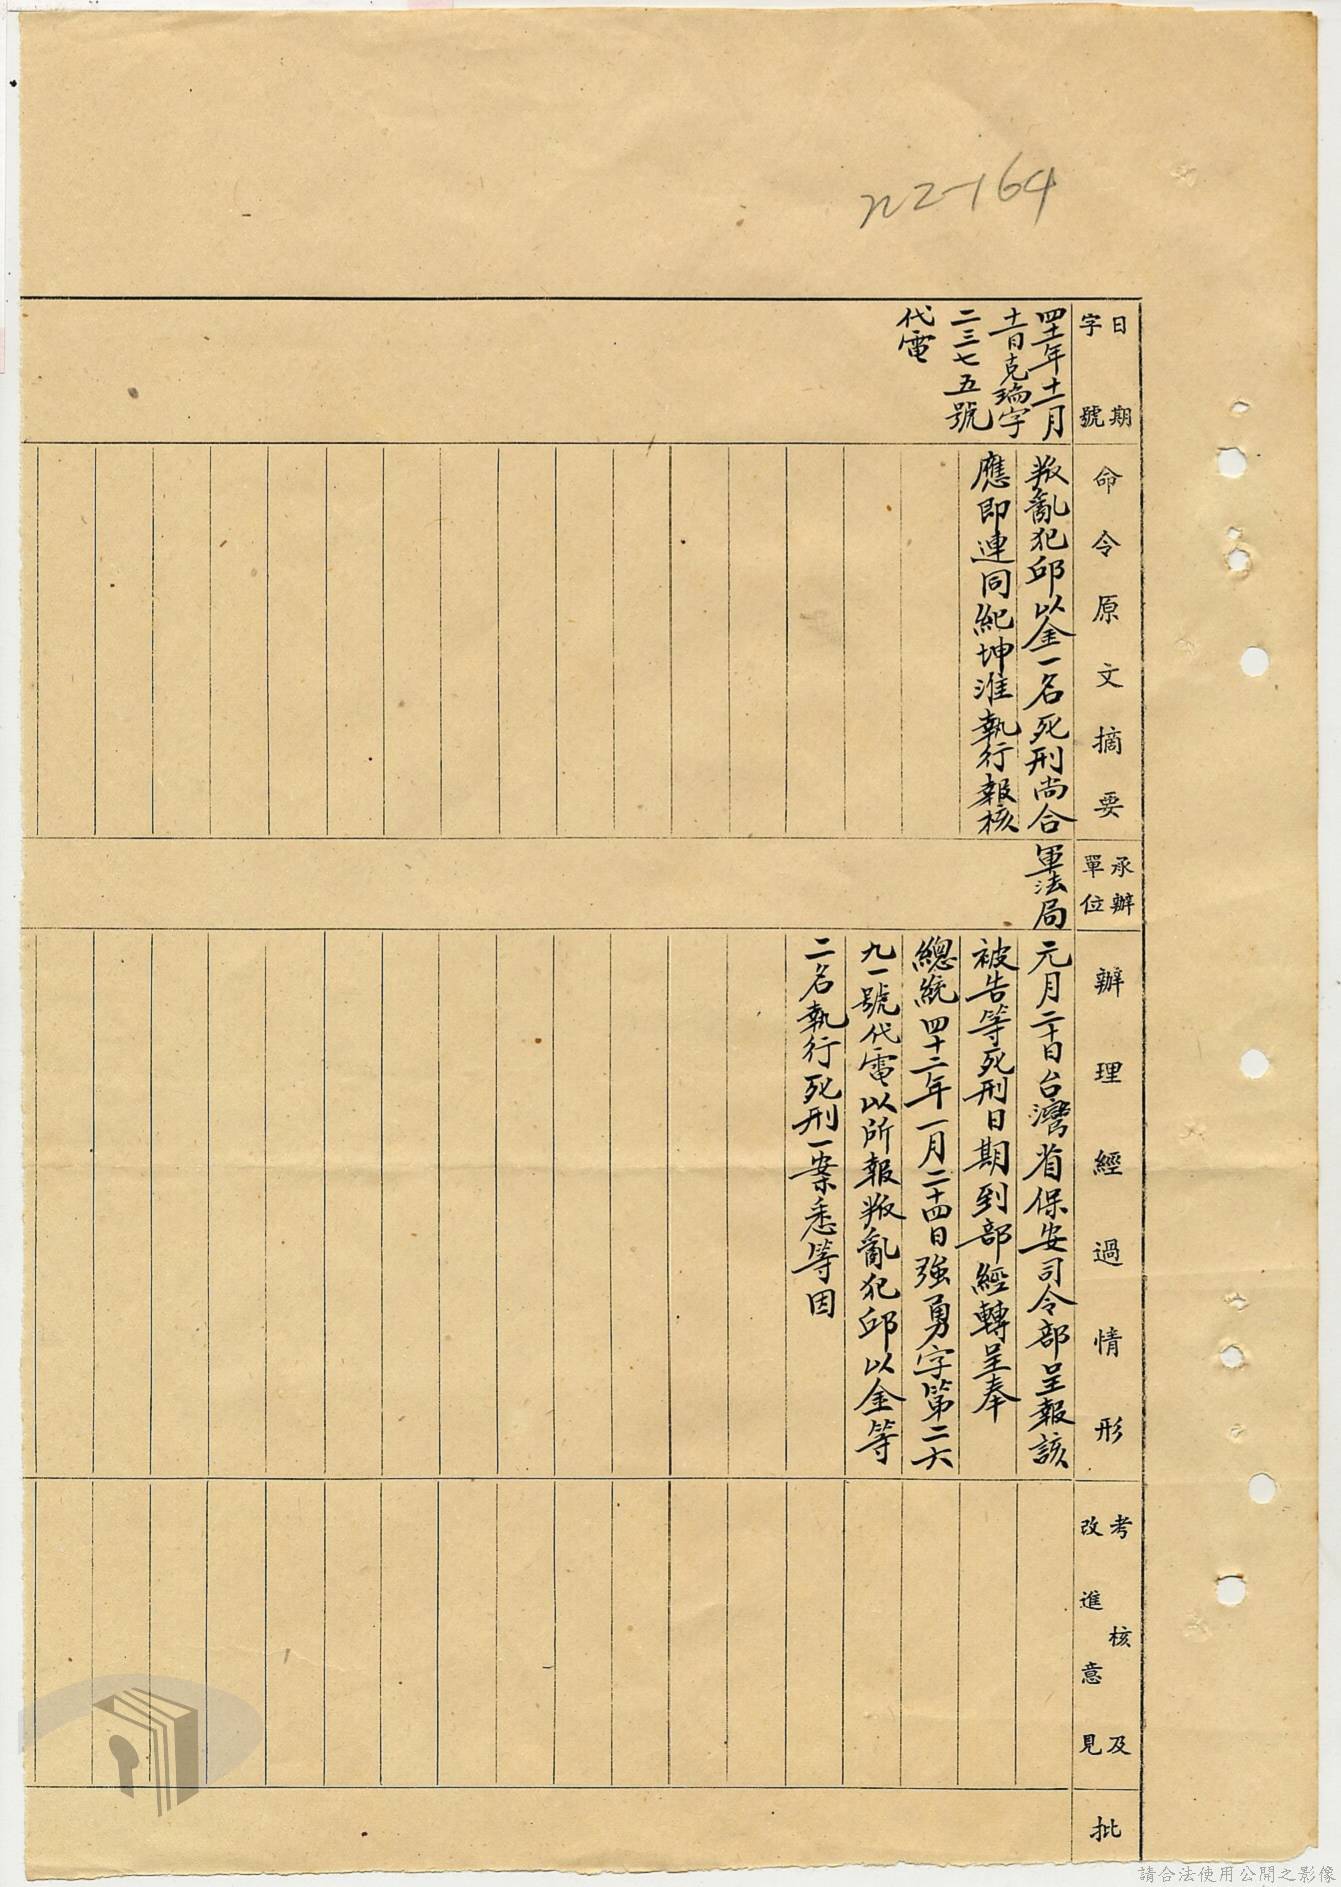 n2-164
日期
字號
四十一年十一月
十一日克瑞字
二三七五號
代電
命令原文摘要
叛亂犯邱以金一名死刑尚合
應即連同紀坤淮執行報核
承辦
單位
軍法局
辦理經過情形
元月二十日台灣省保安司令部呈報該
被告等死刑日期到部經轉呈奉
總統四十二年一月二十四日強勇字第二六
九一號代電以所報叛亂犯邱以金等
二名執行死刑一案悉等因
考核及
改進意見
批
請合法使用公開之影像